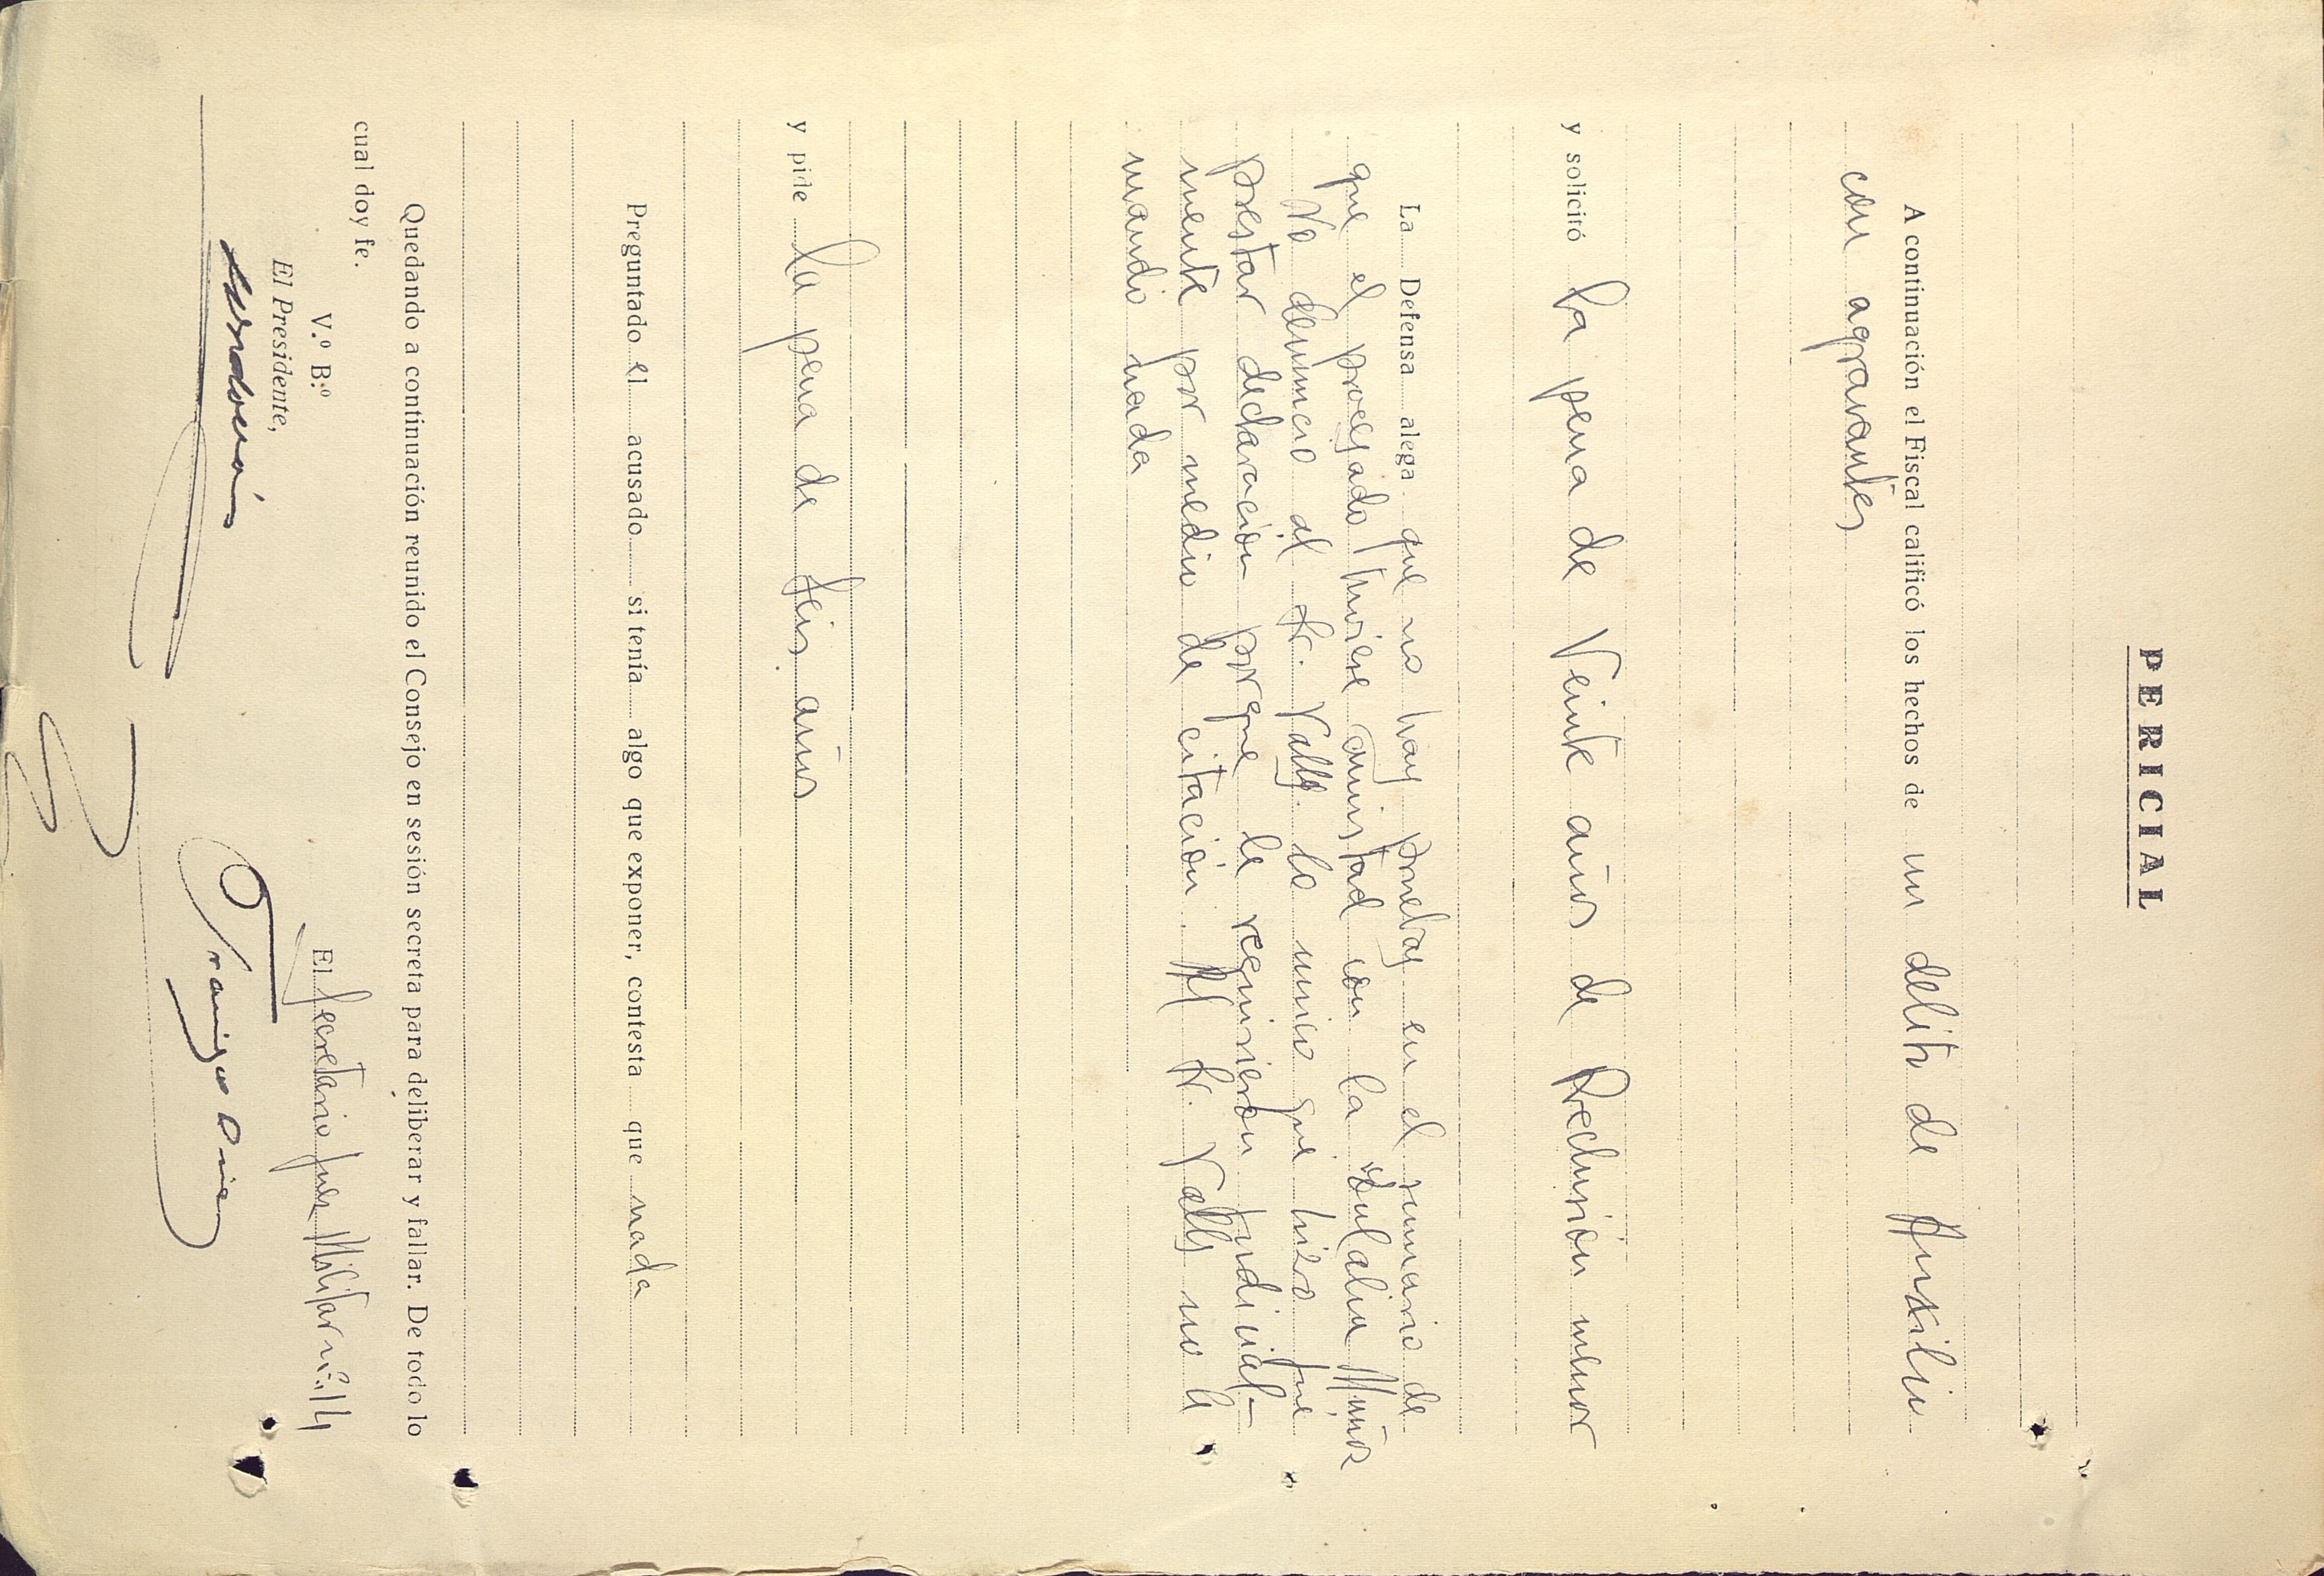 PERICIAL
A continuación el Fiscal calificó los hechos de un delito de Auxilio
con agravantes
y solicitó la pena de Veinte años de Reclusión menor
La Defensa alega que no hay pruebas en el sumario de
que el procesado tuviese amistad con la Eulalia Muñoz
No denunció al Sr. Valls lo unico que hizo fue
prestar declaración porque le requirieron judicial-
mente por medio de citación. Al Sr. Valls no le
mando nada
y pide la pena de seis años
Preguntado el acusado si tenía algo que exponer, contesta que nada
Quedando a continuación reunido el Consejo en sesión secreta para deliberar y fallar. De todo lo
cual doy fe.
V.º B.º
El Presidente,
El Secretario Juez Militar nº 14